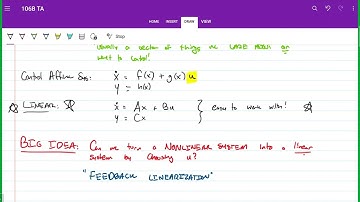 106B TA
HOME INSERT DRAW VIEW
usually a vector of things we CARE ABOUT or
want to control!
Control Affine Sys: ẋ = f(x) + g(x) u
y = h(x)
LINEAR: ẋ = Ax + Bu
y = Cx
easy to work with!
BIG IDEA: Can we turn a NONLINEAR SYSTEM into a linear
system by choosing u?
"FEEDBACK LINEARIZATION"